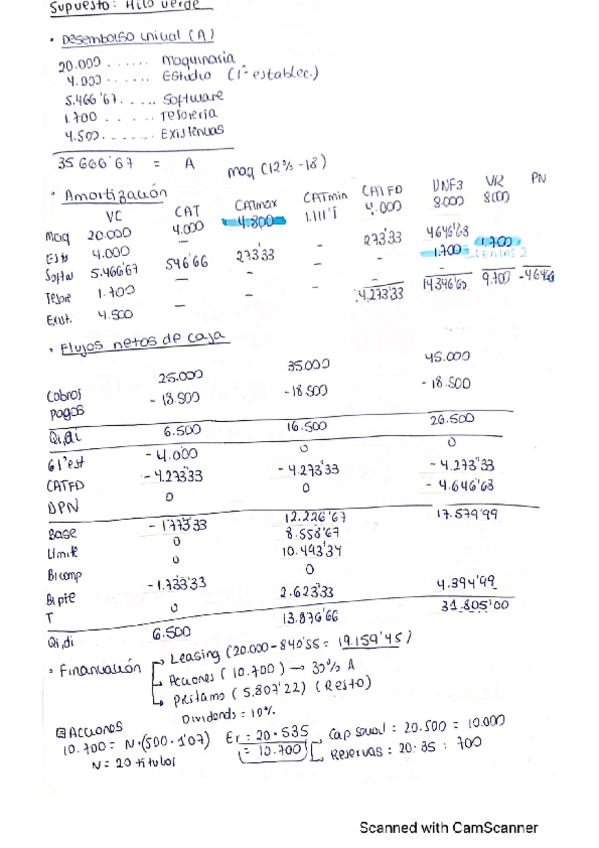 Supuesto: Hilo verde
• Desembolso inicial (A)
20.000 ...... Maquinaria
4.000 ...... Estudio (1º establec.)
5.466'67 ..... Software
1.700 ...... Tesorería
4.500 ...... Existencias
35666'67 = A
maq (12% - 18)
• Amortización
VC CAT CATmax CATmin CATFD UNF3 VR PN
Maq 20.000 4.000 4.800 1.111'1 4.000 8.000 8.000
Estu 4.000 — — —
Softw 5.466'67 546'66 273'33 - 273'33 4646'68
Tesore 1.700 — - - - 1.700 1.700
Exist. 4.500 — - - -
4.273'33 14346'68 9.700 -4646
• Flujos netos de caja
Cobros 25.000 35.000 45.000
Pagos - 18.500 -18.500 - 18.500
Qi,ai 6.500 16.500 26.500
G1ºest - 4.000 0 0
CATFD - 4.273'33 - 4.273'33 - 4.273'33
DPN 0 0 - 4.646'68
Base - 1773'33 12.226'67 17.579'99
Límite 0 8.558'67
Bicomp 0 10.493'34
Bipte -1.733'33 0
T 0 2.623'33 4.394'99
Qi,di 6.500 13.876'66 31.805'00
• Financiación
Leasing (20.000-840'55 = 19.159'45)
Acciones (10.700) → 30% A
Préstamo (5.807'22) (Resto)
Dividendo = 10%
Acciones
10.700 = N·(500·1'07) Er = 20·535 Cap social: 20·500 = 10.000
N = 20 títulos = 10.700 Reservas: 20·35 : 700
Scanned with CamScanner